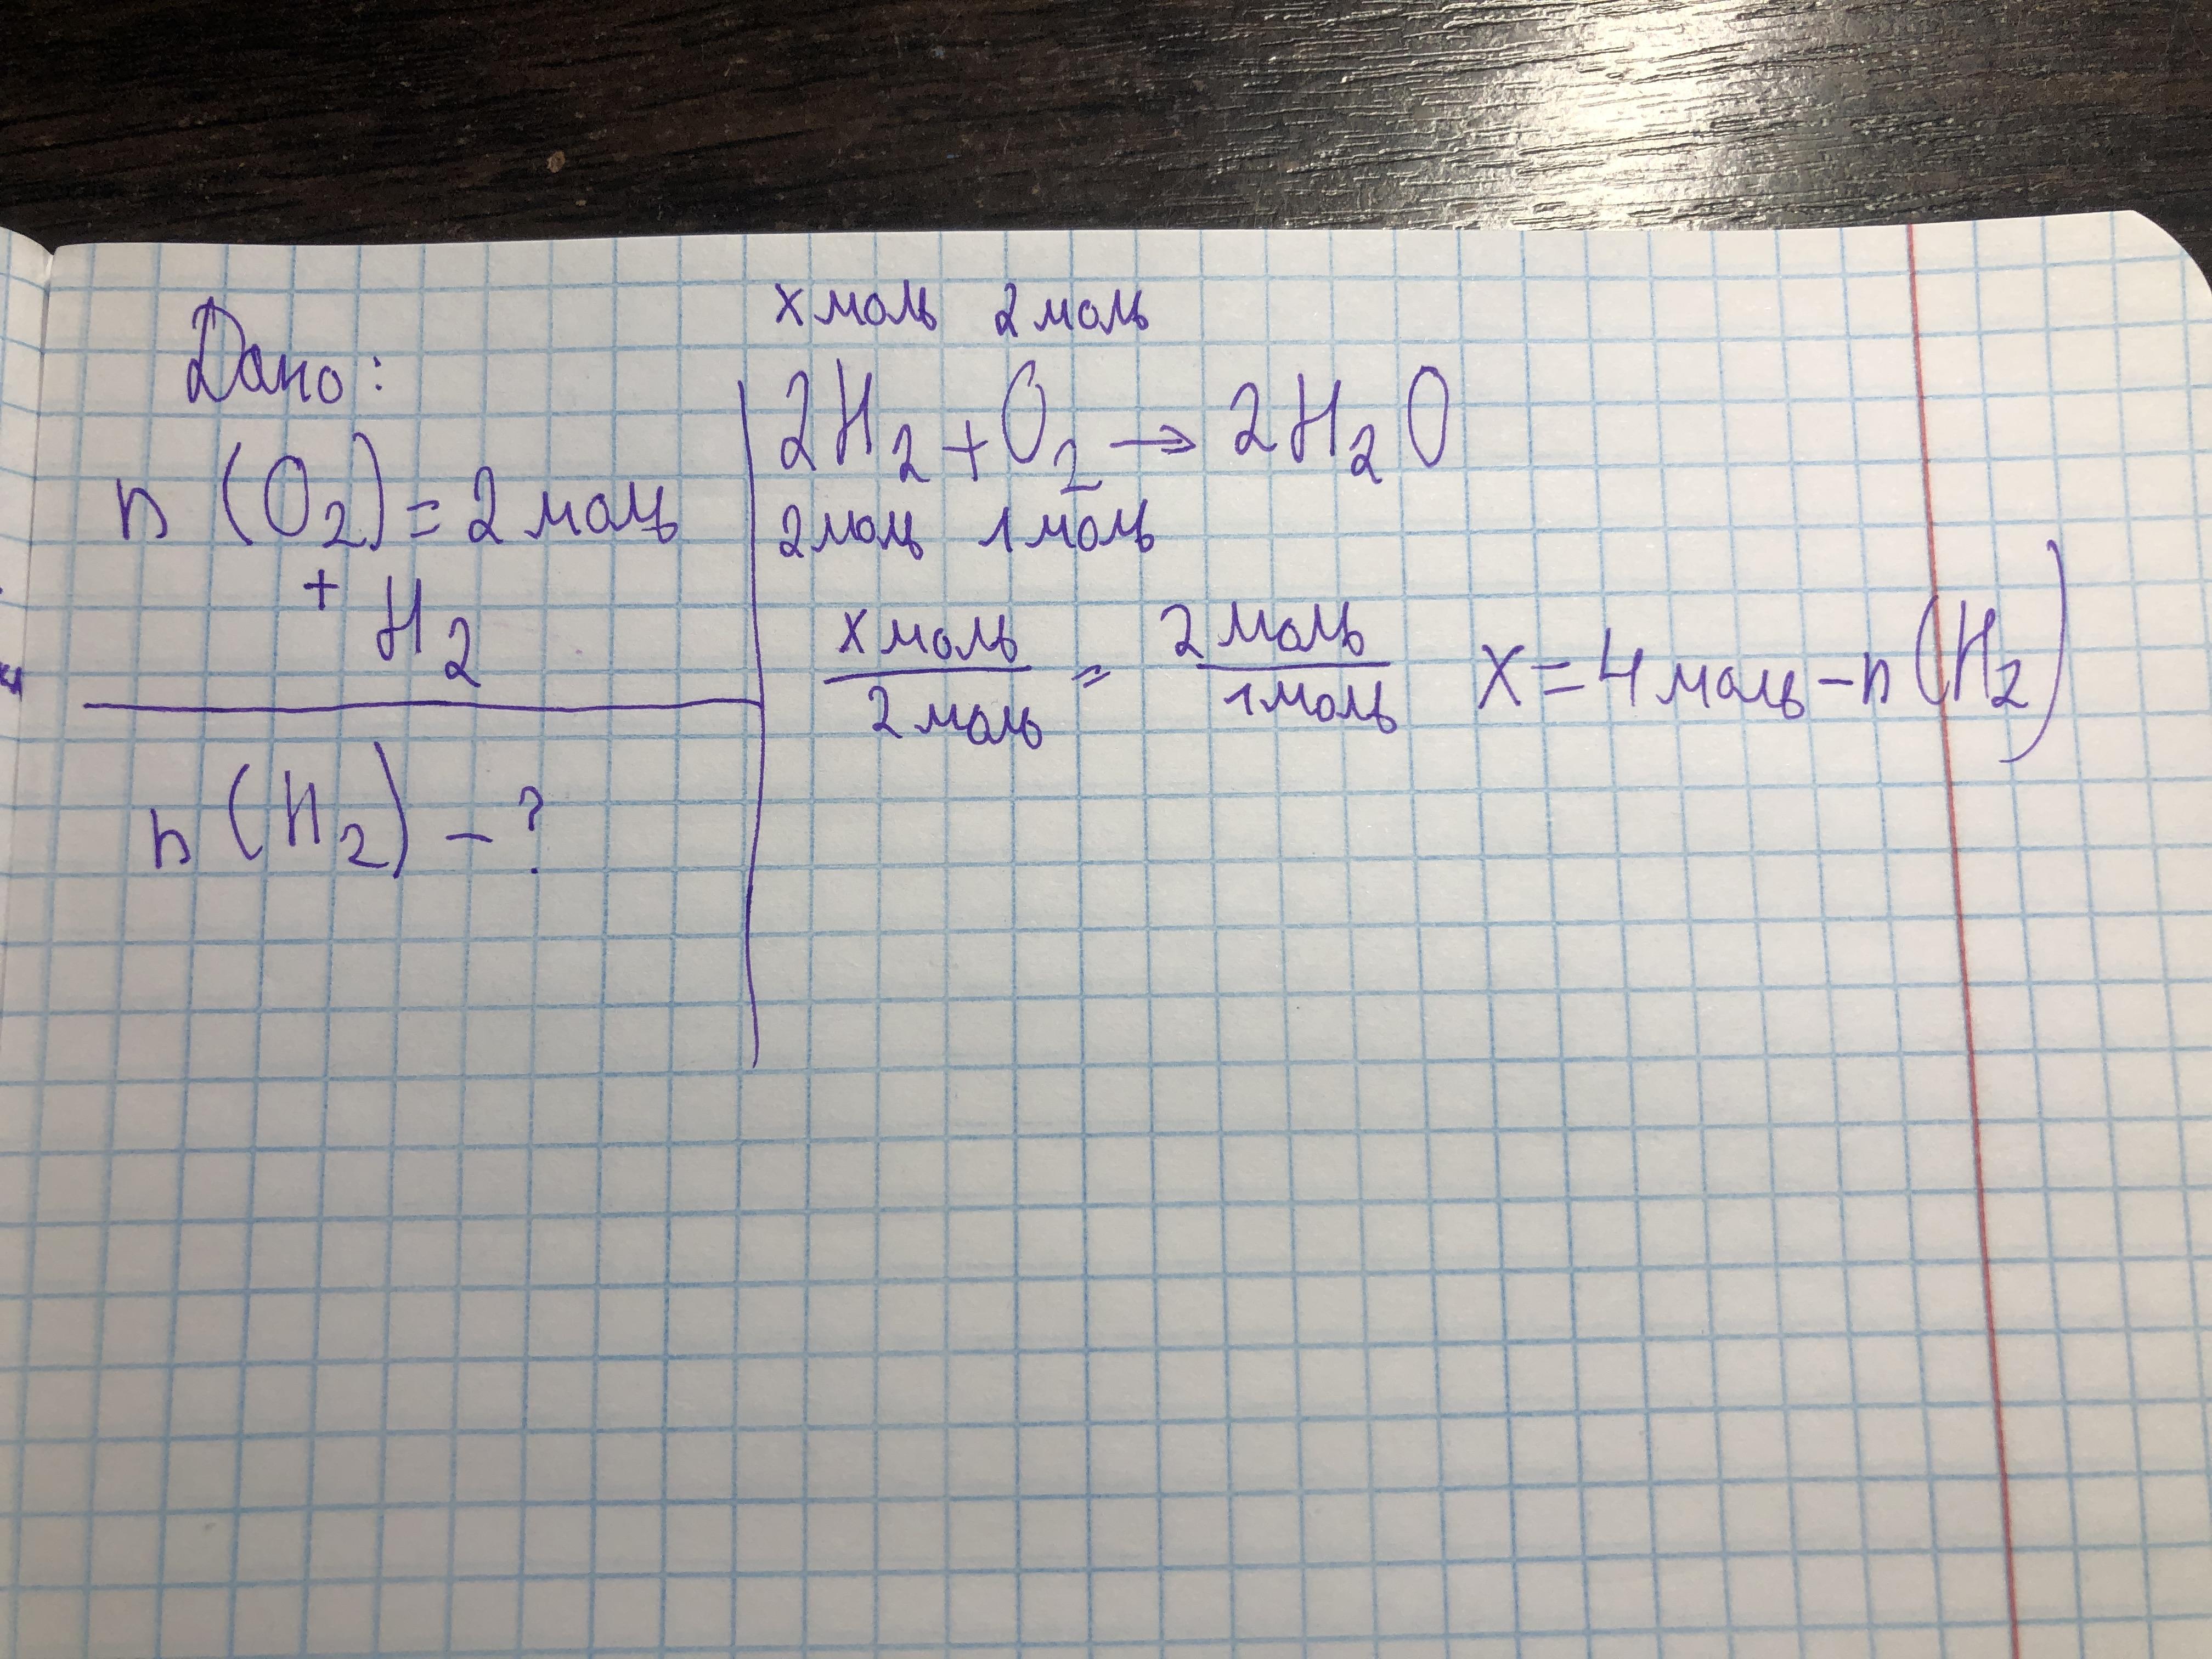 Дано:
n (O₂) = 2 моль
+ H₂
n (H₂) – ?
x моль 2 моль
2H₂ + O₂ → 2H₂O
2 моль 1 моль
x моль / 2 моль = 2 моль / 1 моль x = 4 моль – n (H₂)